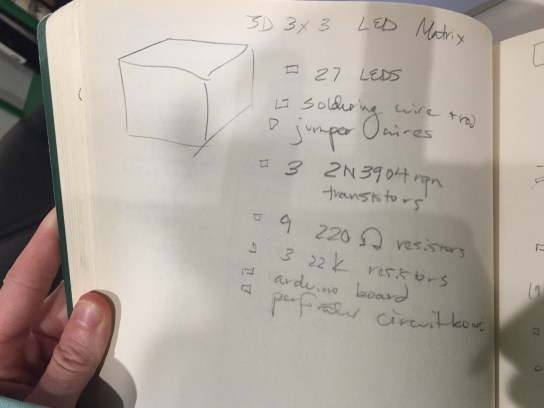 3D 3x3 LED Matrix
27 LEDS
soldering wire + rod
jumper wires
3 2N3904 npn
transistors
9 220 Ω resistors
3 22k resistors
arduino board
circuit